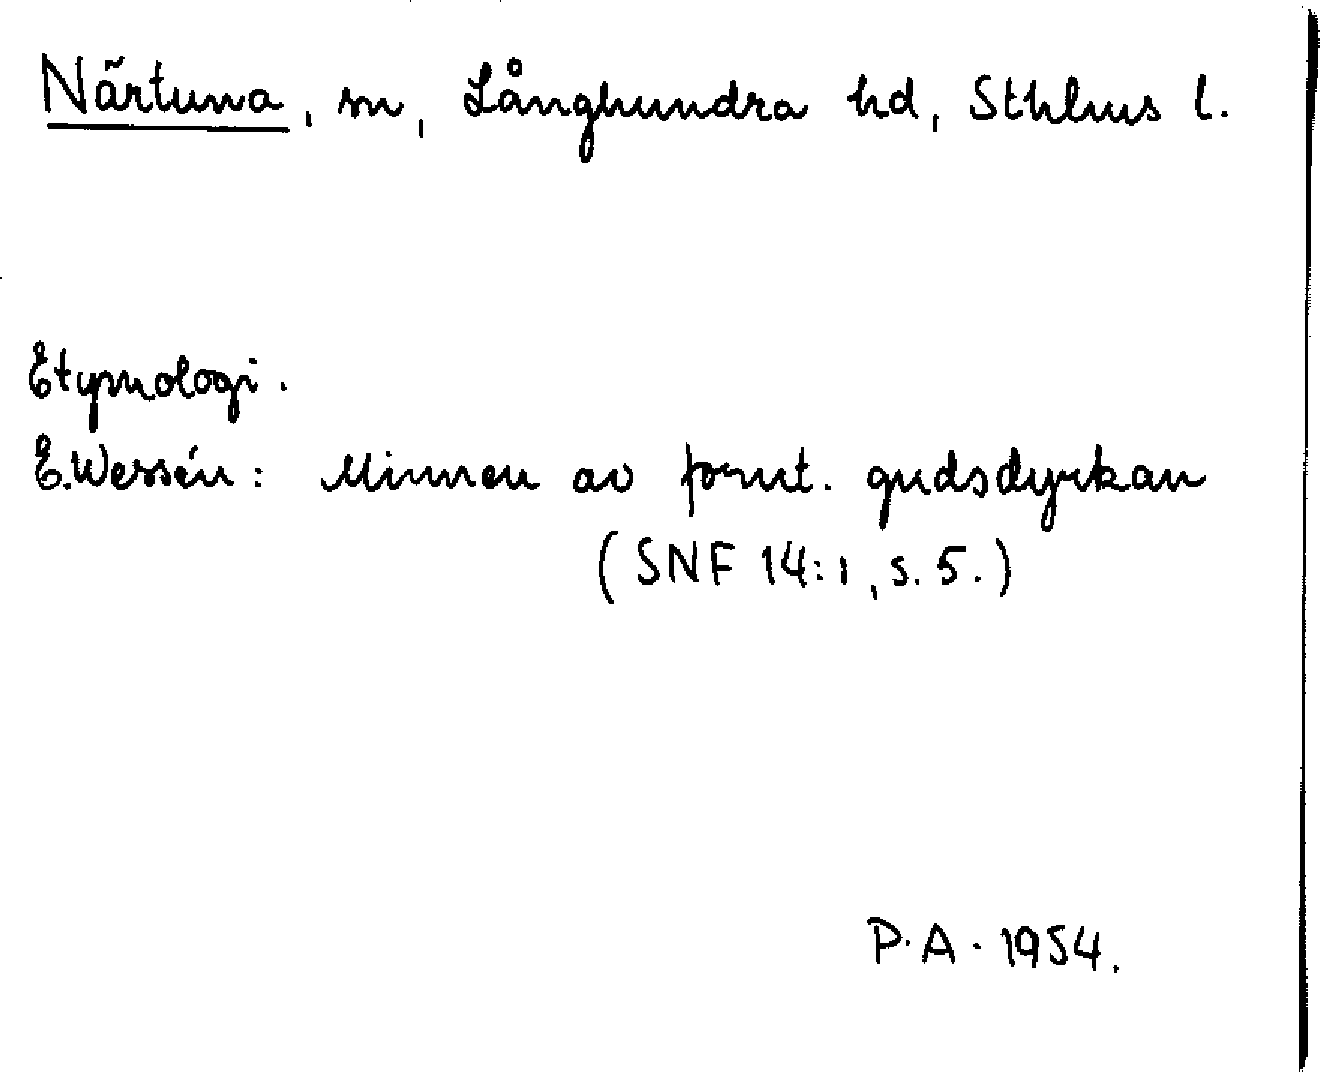 Närtuna, sn, Långhundra hd, Sthlms l.
Etymologi.
E.Wessén: Minnen av fornt. gudsdyrkan
(SNF 14:1, s. 5.)
P.A. 1954.